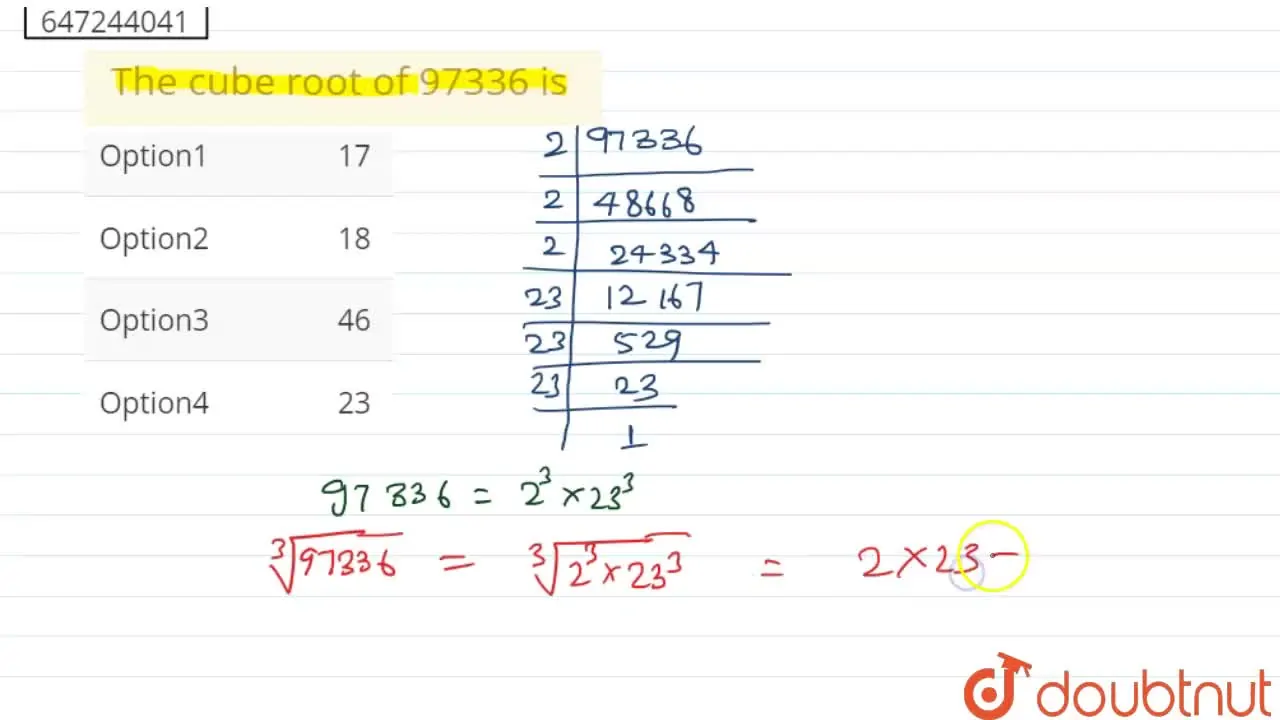 647244041
The cube root of 97336 is
Option1 17
Option2 18
Option3 46
Option4 23
2 97336
2 48668
2 24334
23 12167
23 529
23 23
1
97336 = 2³ × 23³
∛97336 = ∛2³ × 23³ = 2 × 23 –
doubtnut